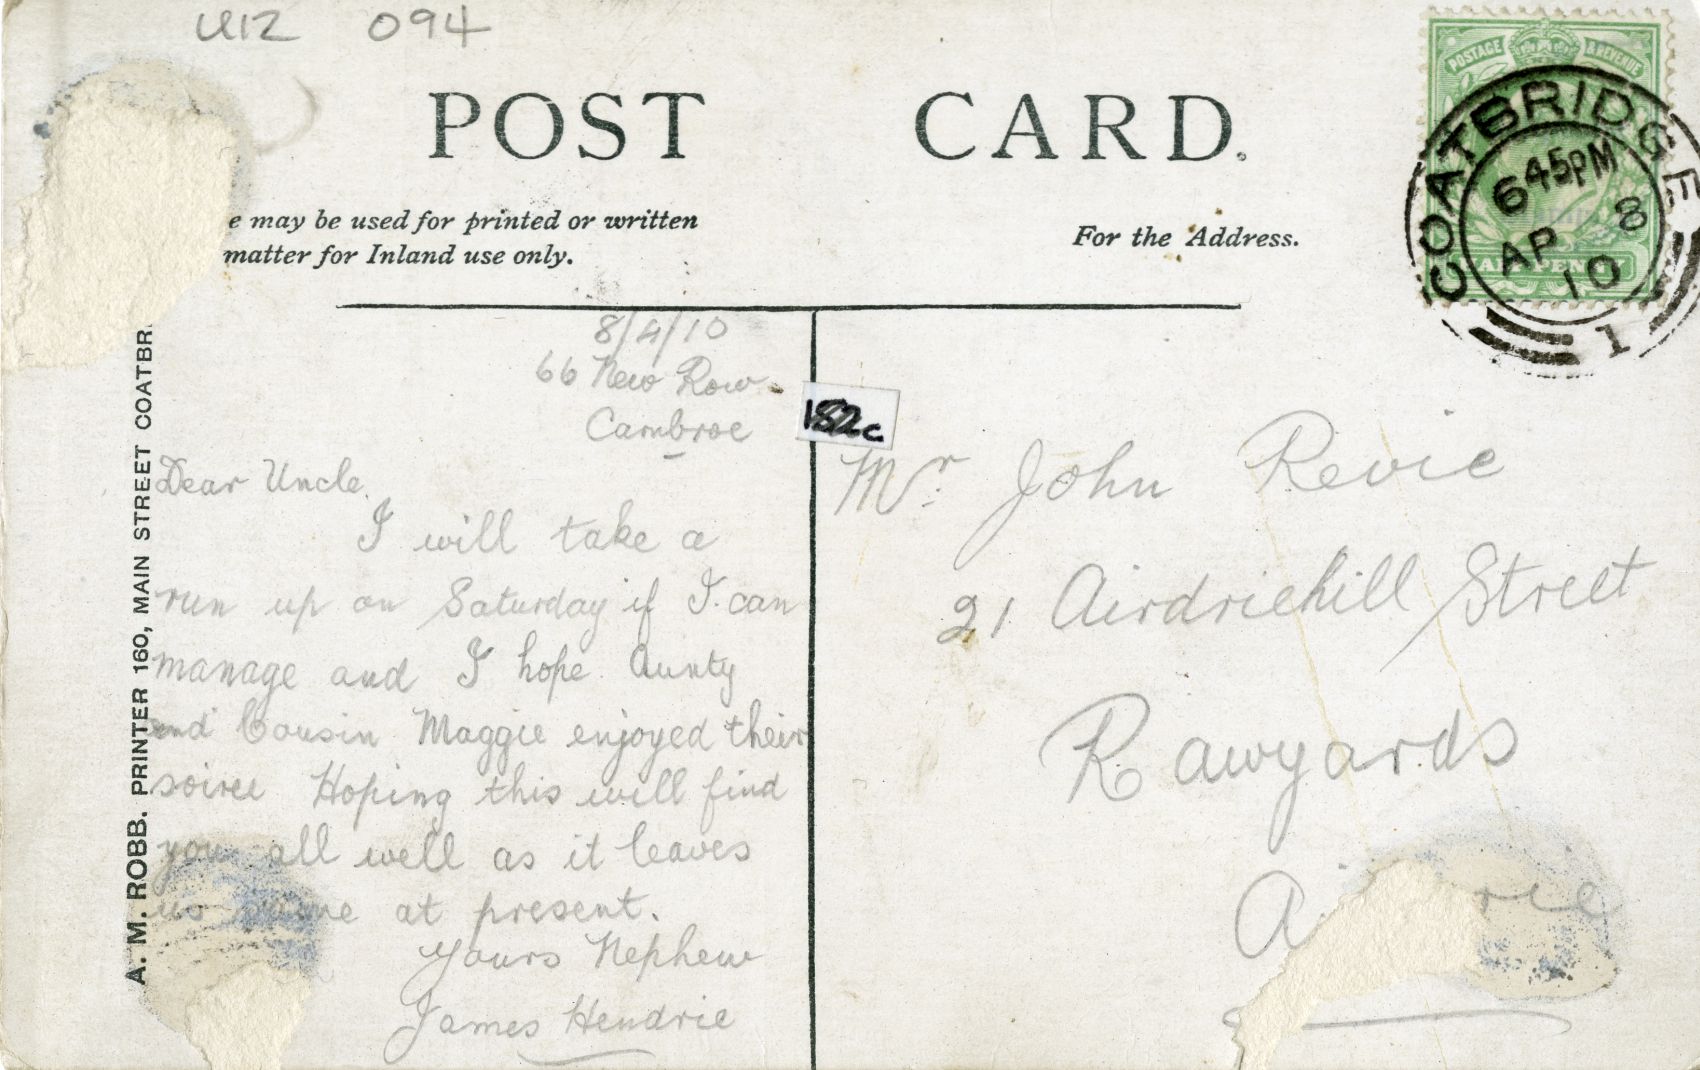 U12 094
POST CARD.
e may be used for printed or written
matter for Inland use only.
For the Address.
POSTAGE & REVENUE
COATBRIDGE
645PM
AP 8
10
1
A. M. ROBB. PRINTER 160, MAIN STREET COATBR
8/4/10
66 New Row
Carnbroe
Dear Uncle
I will take a
run up on Saturday if I can
manage and I hope Aunty
and Cousin Maggie enjoyed their
soiree Hoping this will find
you all well as it leaves
us at present.
Yours Nephew
James Hendrie
Mr John Revie
21 Airdriehill Street
Rawyards